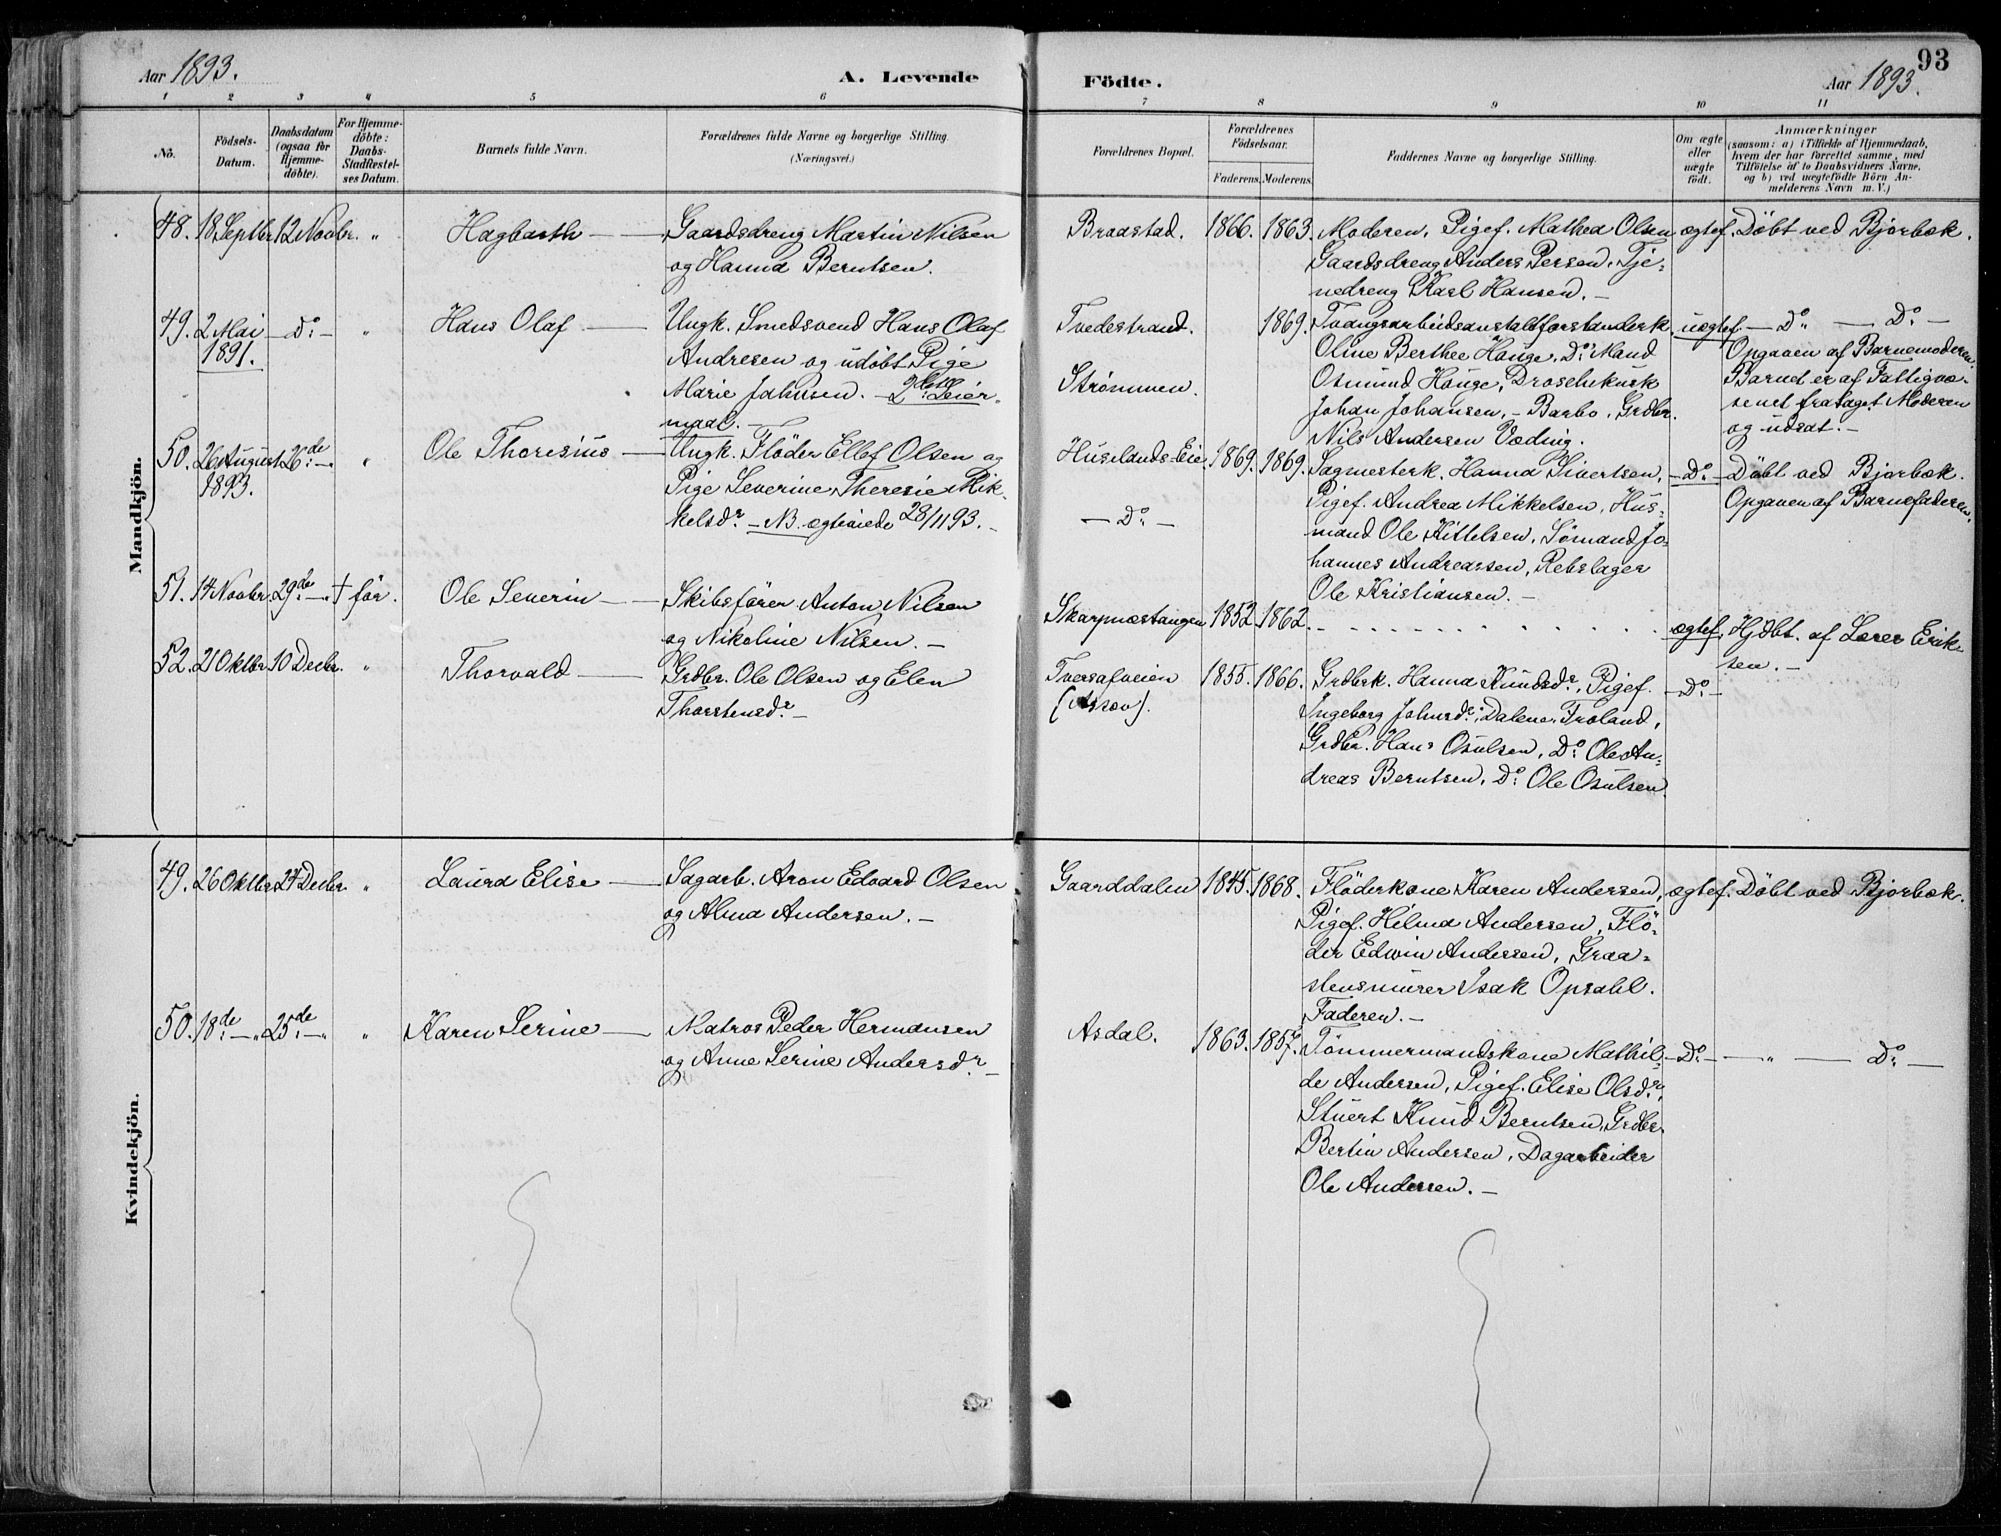 93
Aar 1893.
A. Levende
Födte.
Aar 1893.
1 2 3 4 5 6 7 8 9 10 11
No.
Födsels-
Datum.
Daabsdatum
(ogsaa for
Hjemme-
döbte).
For Hjemme-
döbte:
Daabs-
Stadfæstel-
ses Datum.
Barnets fulde Navn.
Forældrenes fulde Navne og borgerlige Stilling.
(Næringsvei.)
Forældrenes Bopæl.
Forældrenes
Födselsaar.
Faderens. Moderens.
Faddernes Navne og borgerlige Stilling.
Om ægte
eller
uægte
födt.
Anmærkninger
(saasom: a) i Tilfælde af Hjemmedaab,
hvem der har forrettet samme, med
Tilföielse af to Daabsvidners Navne,
og b) ved uægtefödte Börn An-
melderens Navn m. V.)
Mandkjön.
48. 18 Septbr. 12 Novbr. " Hagbarth — Gaardsdreng Martin Nilsen
og Hanna Berntsen.
Braastad. 1866. 1863. Moderen, Pigef. Mathea Olsen
Gaardsdreng Anders Persen, Tje-
nedreng Karl Hansen. —
ægtef. Döbt ved Bjorbæk.
49. 2 Mai
1891.
— Do: — " Hans Olaf — Ungk. Smedsvend Hans Olaf
Andresen og udöbt Pige
Marie Jahnsen. — 2det Leier-
maal. —
Tvedestrand.
Strømmen.
1869. Tvangsarbeidsanstaltforstanderk.
Oline Berthee Hauge, Do: Mand
Osmund Hauge, Droschekusk
Johan Johansen, — Barbo, Grdbr.
Nils Andersen Væding.
uægtef. — Do: — Do: —
Opgaven af Barnemoderen.
Barnet er af Fattigvæ-
senet frataget Moderen
og udsat. —
50. 26 August
1893.
26de: — " Ole Thoresius — Ungk. Fløder Ellef Olsen og
Pige Severine Theresie Mik-
kelsdr. — NB. ægteviede 28/11 93. —
Huselands-Eie
— Do: —
1869. 1869. Sagmesterk. Hanna Sivertsen,
Pigef. Andrea Mikkelsen, Hus-
mand Ole Kittelsen, Sømand Jo-
hannes Andreassen, Rebslager
Ole Kristiansen. —
— Do: — Döbt ved Bjorbæk.
Opgaven af Barnefaderen.
51. 14 Novbr. 29de: — † før. Ole Severin — Skibsfører Anton Nilsen
og Nikoline Nilsen. —
Skarpnæstangen 1852. 1862.
ægtef. Hjdbt. af Lærer Erik-
sen. —
52. 21 Oktbr. 10 Decbr. " Thorvald — Grdbr. Ole Olsen og Elen
Thorstensdr. —
Tversafveien
1855. 1866. Grdbrk. Hanna Knudsdr, Pigef.
Ingeborg Johnsdr, Dalene, Froland,
Grdbr. Hans Osulsen, Do: Ole An-
dreas Berntsen, Do: Ole Osulsen.
— Do: —
Kvindekjön.
49. 26 Oktbr 24 Decbr. " Laura Elise — Sagarb. Aron Edvard Olsen
og Alma Andersen. —
Gaarddalen 1845. 1868. Fløderkone Karen Andersen,
Pigef. Hilma Andersen, Flö-
der Edwin Andersen, Graa-
stensmurer Isak Opsahl.
Faderen. —
ægtef. Döbt ved Bjorbæk.
50. 18de: — " 25de: — " " Karen Serine — Matros Peder Hermansen
og Anne Serine Andersdr. —
Asdal. 1863. 1857. Tømmermandskone Mathil-
de Andersen, Pigef. Elise Olsdr,
Stuert Knud Berntsen, Grdbr.
Bertin Andersen, Dagarbeider
Ole Andersen. —
— Do: — — " — Do: —